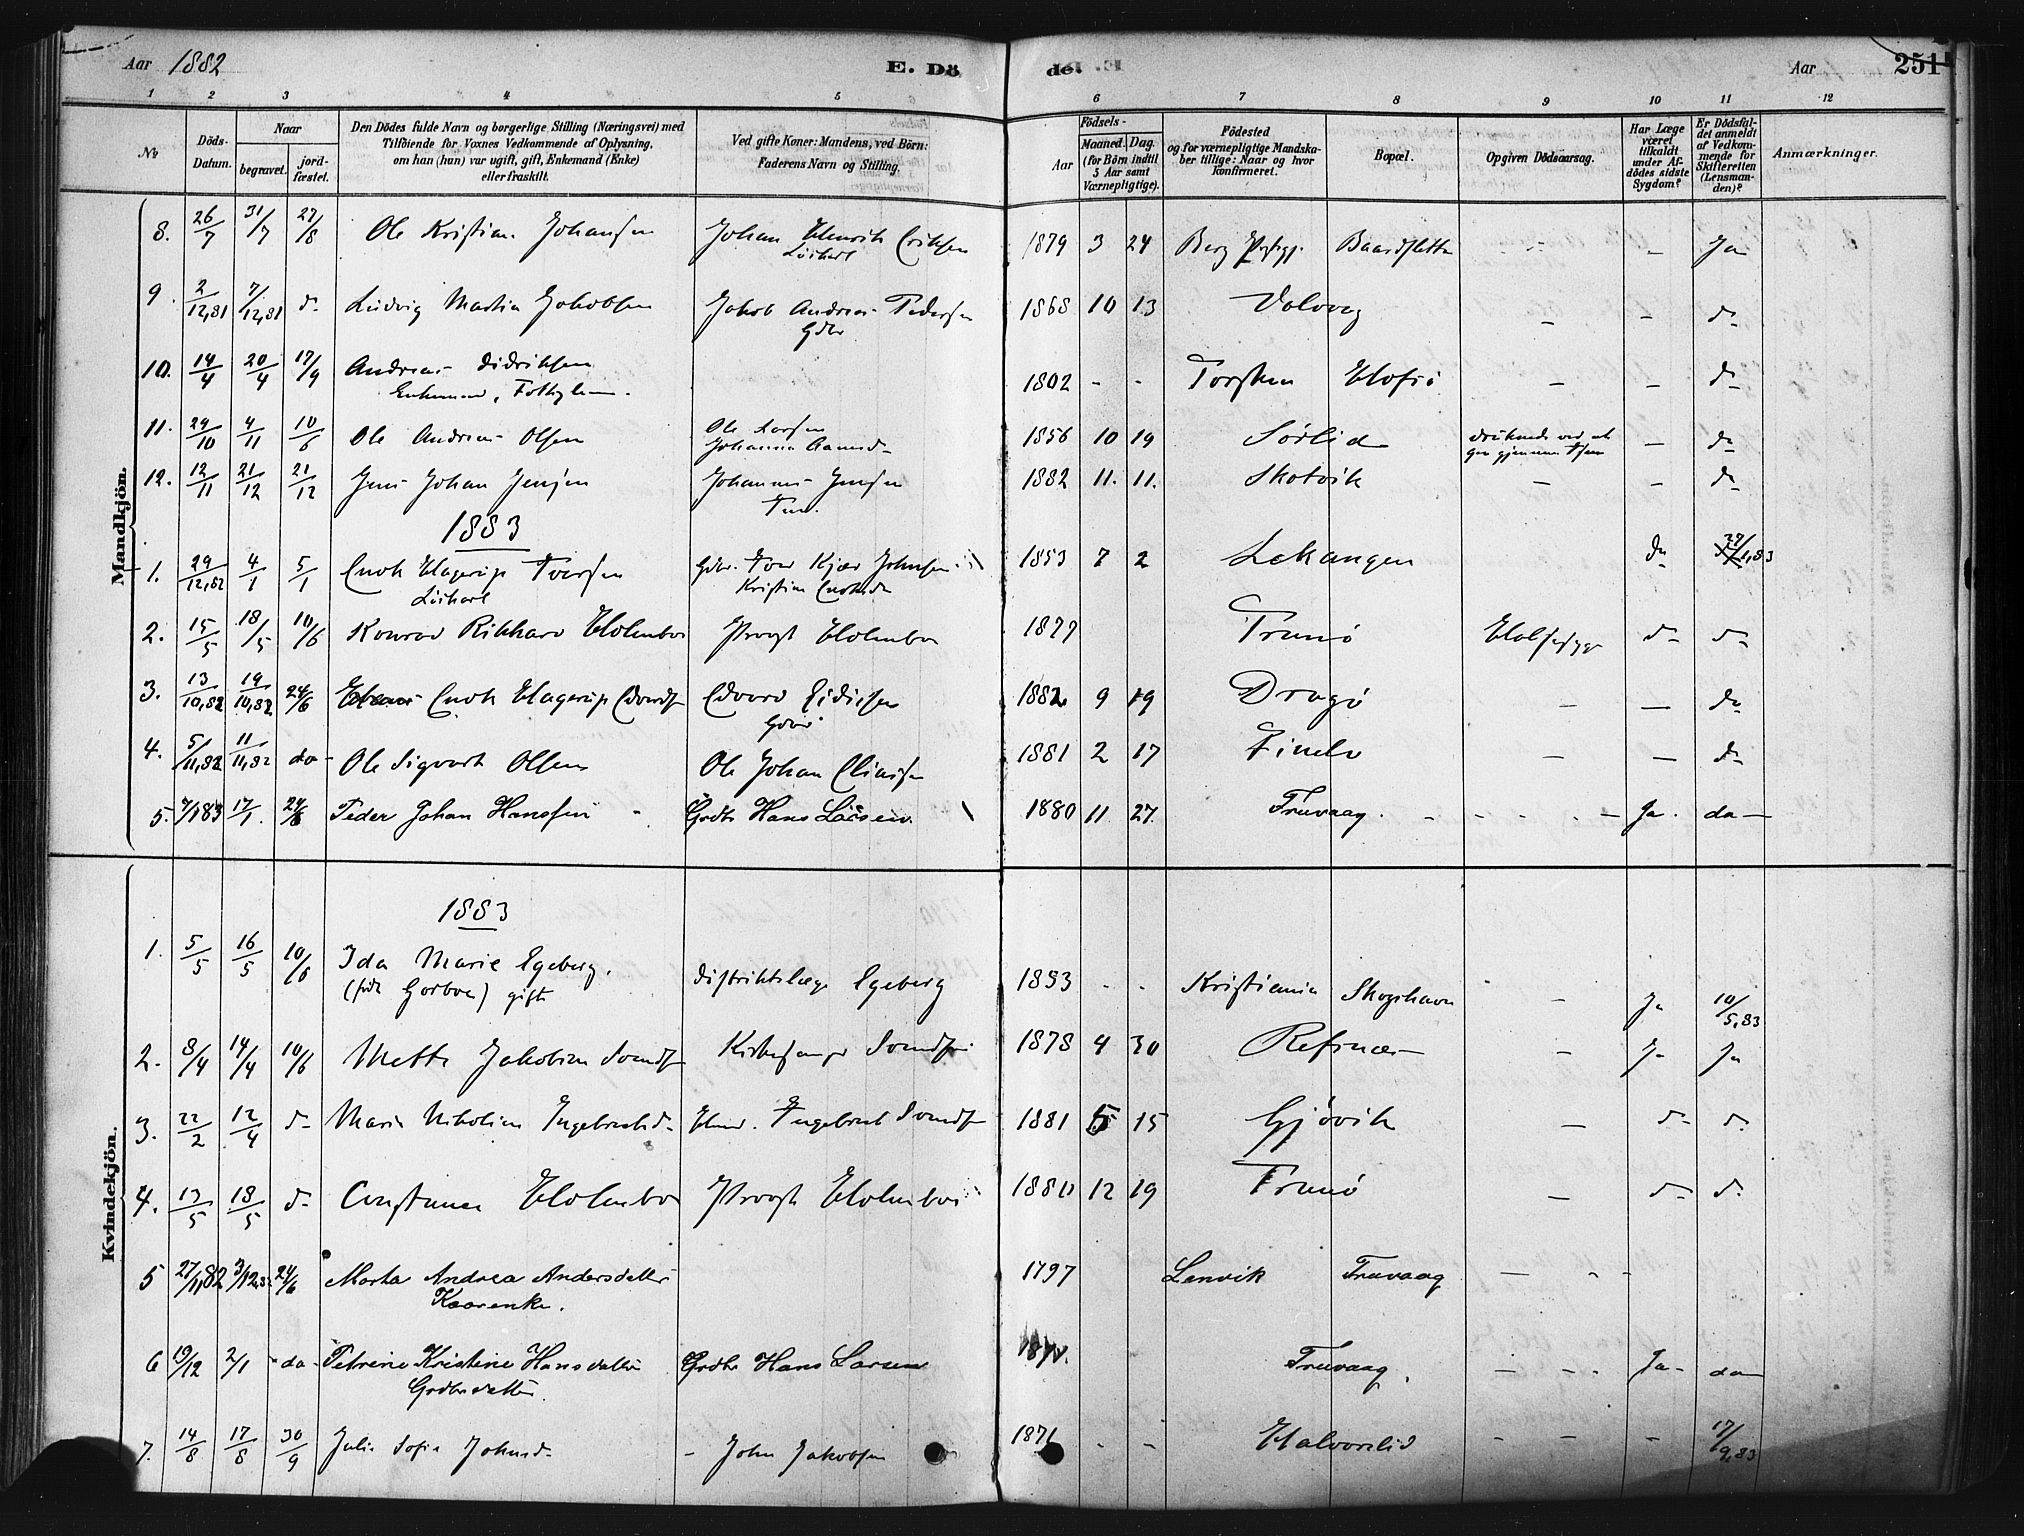 Aar 1882 E. Dö de. Aar 251
1 2 3 4 5 6 7 8 9 10 11 12
№
Döds-Datum.
Naar
begravet.
jord-fæstet.
Den Dödes fulde Navn og borgerlige Stilling (Næringsvei) med
Tilföiende for Voxnes Vedkommende af Oplysning,
om han (hun) var ugift, gift, Enkemand (Enke)
eller fraskilt.
Ved gifte Koner: Mandens, ved Börn:
Faderens Navn og Stilling.
Födsels-
Aar
Maaned. Dag.
(for Börn indtil
5 Aar samt
Værnepligtige).
Födested
og for værnepligtige Mandska-
ber tillige: Naar og hvor
konfirmeret.
Bopæl.
Opgiven Dödsaarsag.
Har Læge
været
tilkaldt
under Af-
dödes sidste
Sygdom?
Er Dödsfal-
det anmeldt
af Vedkom-
mende for
Skifteretten
(Lensman-
den)?
Anmærkninger.
Mandkjön.
8. 26/7 31/7 27/8 Ole Kristian Johansen Johan Henrik Eriksen 1879 3 24 Berg Baardsletta - - Ja
9. 2/12,81 7/12,81 d- Ludvig Martin Jakobsen Jakob Andreas Pedersen 1868 10 13 Valvag - - do
Gdbr
10. 14/4 20/4 17/9 Andreas Didriksen 1802 - - Torsken Hofsö - - do
Enkemand,
11. 29/10 4/11 10/6 Ole Andreas Olsen Ole Larsen 1856 10 19 Sörlid druknede ved at - do
gaa gjennem Isen
12. 12/11 21/12 21/12 Jens Johan Jensen Johannes Jensen 1882 11. 11. Skatvik - - do
1883
1. 29/12,82 4/1 5/1 Enok Hagerup Iversen Gdbr. Iver Kjær Johnsen 1853 7 2 Lekangen do 1,83
2. 15/5 18/5 10/6 Konrad Rikhard Holmboe Provst Holmboe 1879 Tranö Halssyge d- d-
3. 13/10,82 19/10,82 24/6 Enok Hagerup Edvardsen Edvard Eidissen 1882 9 19 Dragö - - do
4. 5/11,82 11/11,82 do- Ole Sigvart Olsen Ole Johan Eliassen 1881 2 17 - - do
5. 7/1 83 17/1. 24/6 Peder Johan Hanssen Grdbr Hans Larsen 1880 11 27 Truvaag. - - - - Ja. da-
Kvindekjön.
1883
1. 5/5 16/5 10/6 Ida Marie Egeberg. Distriktslæge Egeberg 1853 - - Kristiania Skogshavn - Ja 10/5,83
(född Gorboe) gift
2. 8/4 14/4 10/6 Mette Jakobine Svendsen Kirkesanger Svendsen 1878 4 30 Refsnes - Ja Ja
3. 22/2 12/4 d- Maria Nikoline Ingebrigtsd- Ingebrigt Svendsen 1881 5 15 Gjövik - d- d-
4. 13/5 18/5 d- Constance Holmboe Provst Holmboe 1880 12 19 Tranö - d- d-
5 27/11,82 3/12,82 24/6 Marta Andrea Andersdatter 1797 Lenvik Truvaag - - -
Kaarenke.
6 19/12 2/1 - da - Petrine Kristine Hansdatter Grdbr Hans Larsen Truvaag. - - - Ja- da
Grdbrsdatter.
7. 14/8 17/8 30/9 Julie Sofie Johnsd- - John Jakobsen 1871 - - Halvorslid - - - 17/9,83